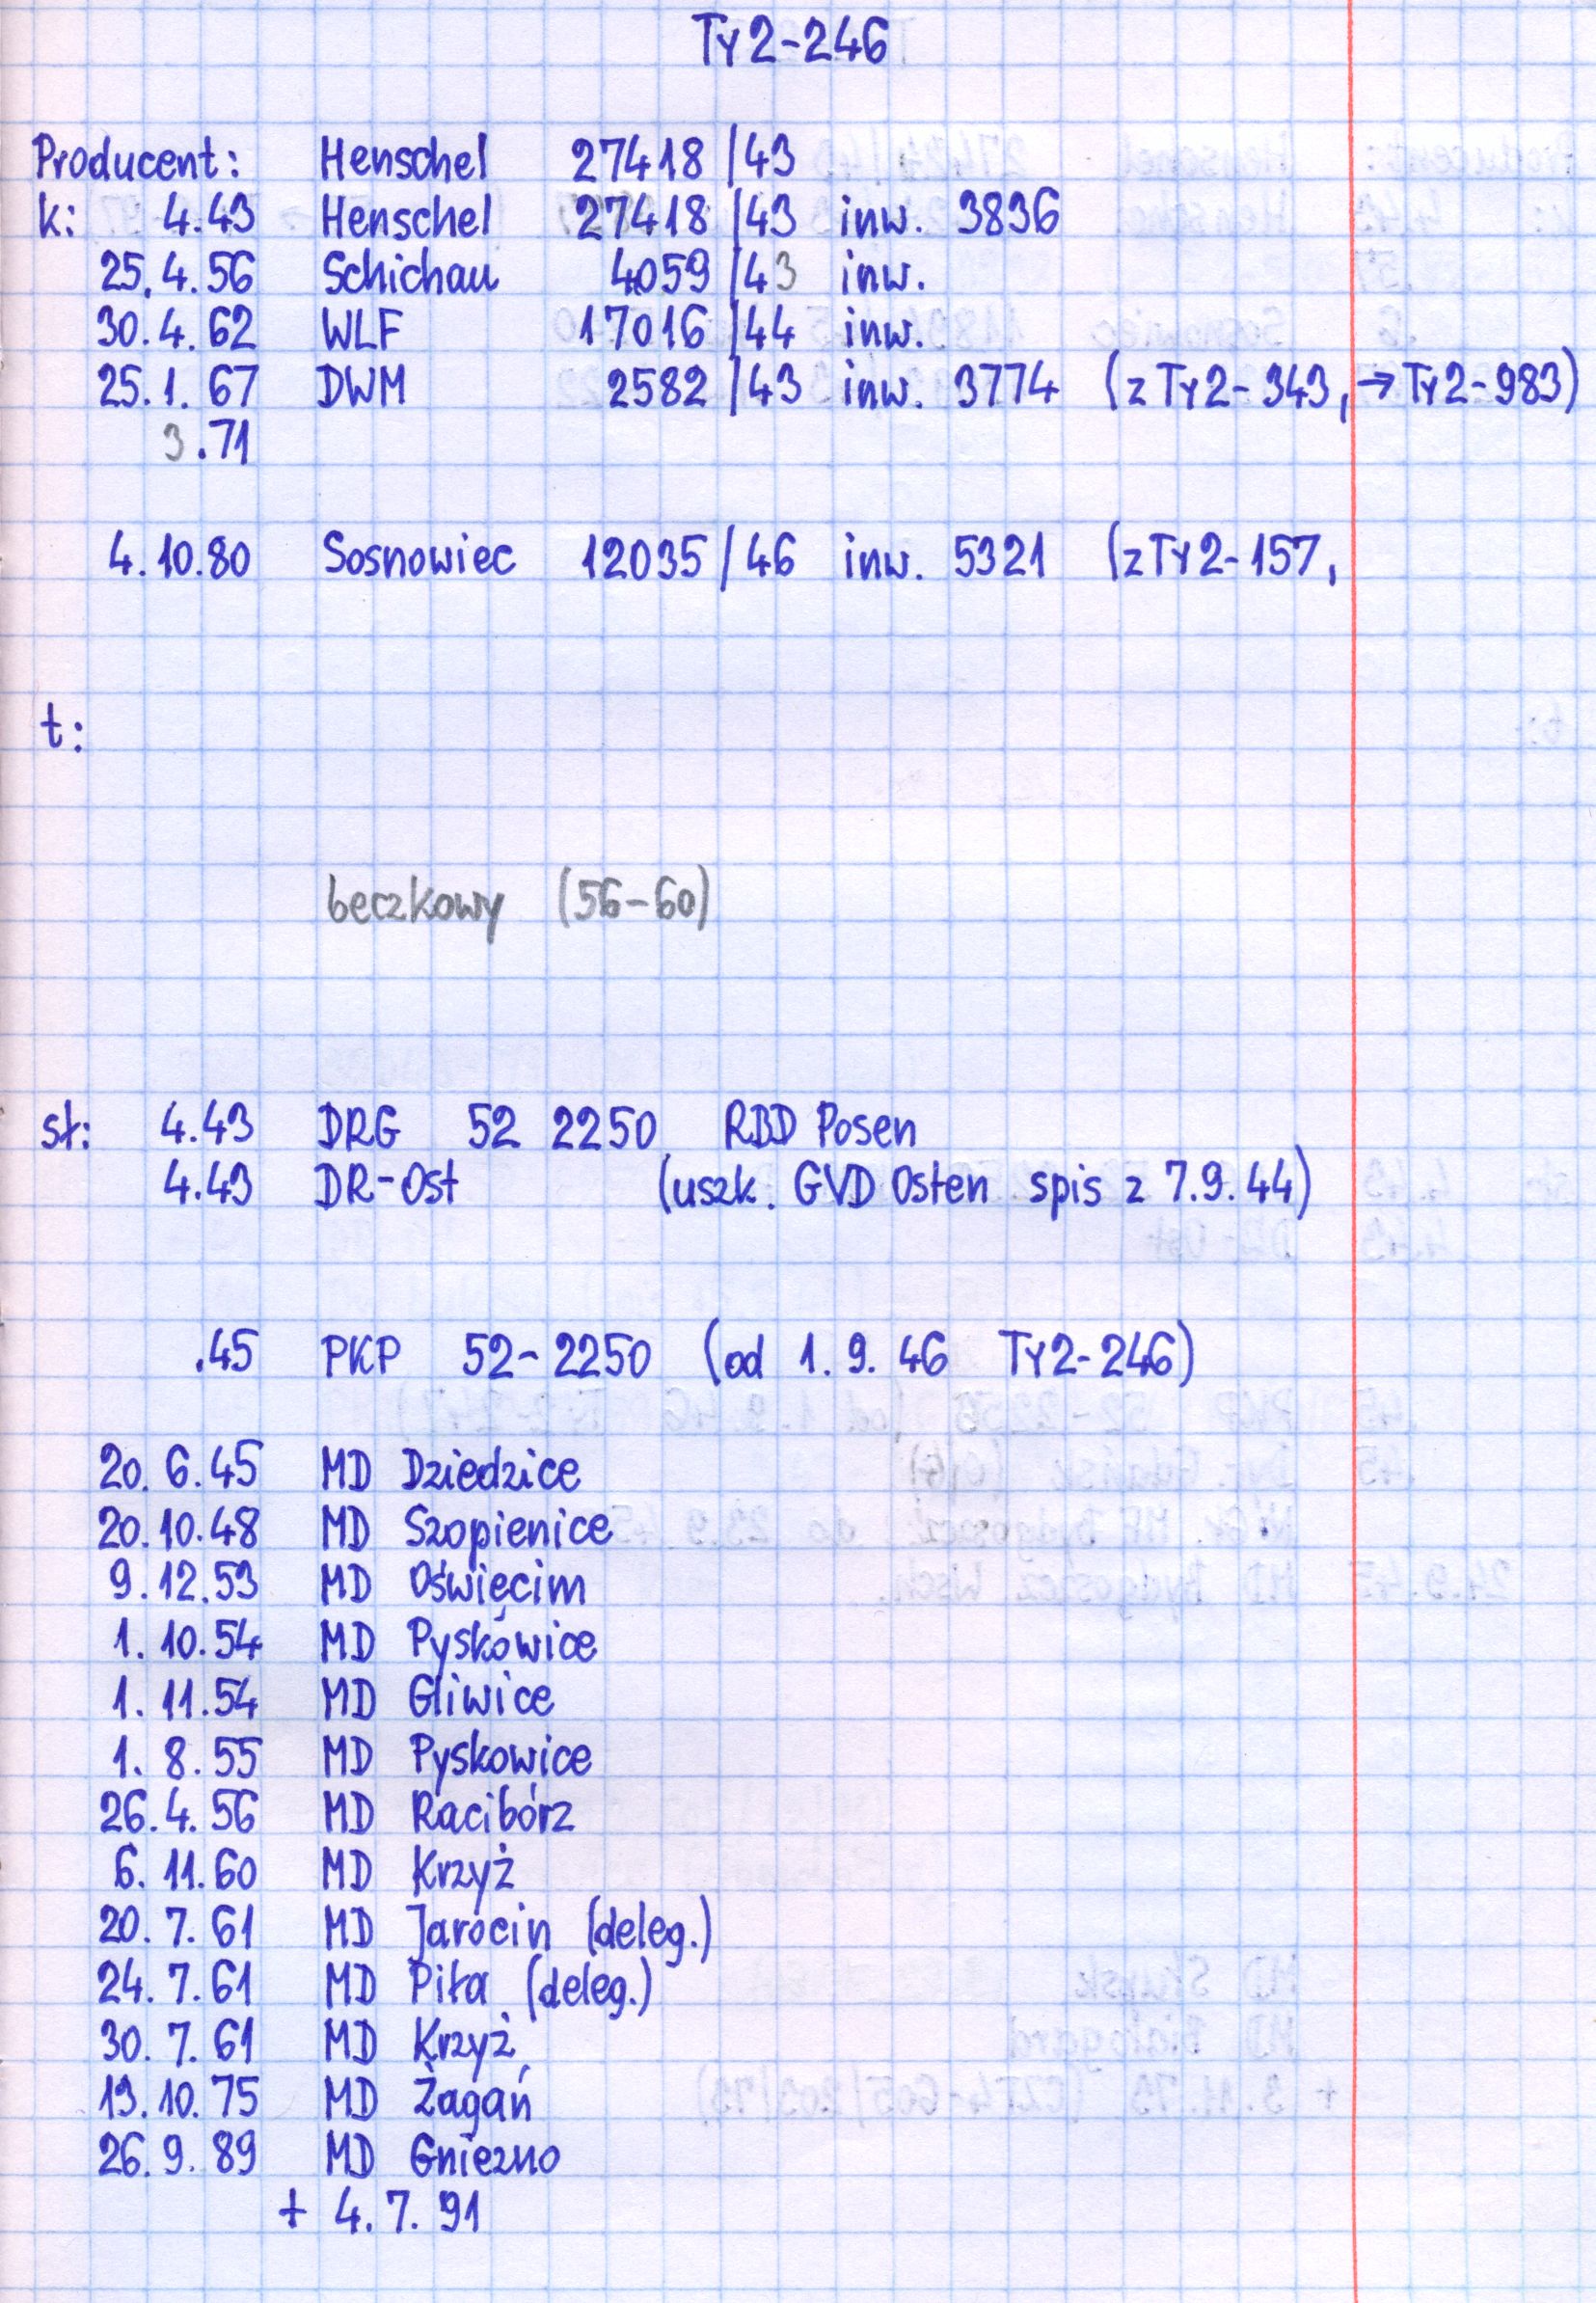 Ty2-246
Producent: Henschel 27418/43
k: 4.43 Henschel 27418/43 inw. 3836
25.4.56 Schichau 4059/43 inw.
30.4.62 WLF 17016/44 inw.
25.1.67 DWM 2582/43 inw. 3774 (z Ty2-343, → Ty2-983)
3.71
4.10.80 Sosnowiec 12035/46 inw. 5321 (z Ty2-157,
t:
beczkowy (56-60)
st: 4.43 DRG 52 2250 RBD Posen
4.43 DR-Ost (uszk. GVD Osten spis z 7.9.44)
.45 PKP 52-2250 (od 1.9.46 Ty2-246)
20.6.45 MD Dziedzice
20.10.48 MD Szopienice
9.12.53 MD Oświęcim
1.10.54 MD Pyskowice
1.11.54 MD Gliwice
1.8.55 MD Pyskowice
26.4.56 MD Racibórz
6.11.60 MD Krzyż
20.7.61 MD Jarocin (deleg.)
24.7.61 MD Piła (deleg.)
30.7.61 MD Krzyż
19.10.75 MD Żagań
26.9.89 MD Gniezno
+ 4.7.91